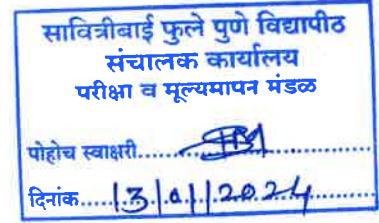 सावित्रीबाई फुले पुणे विद्यापीठ
संचालक कार्यालय
परीक्षा व मूल्यमापन मंडळ
पोहोच स्वाक्षरी
दिनांक.....13/01/2024